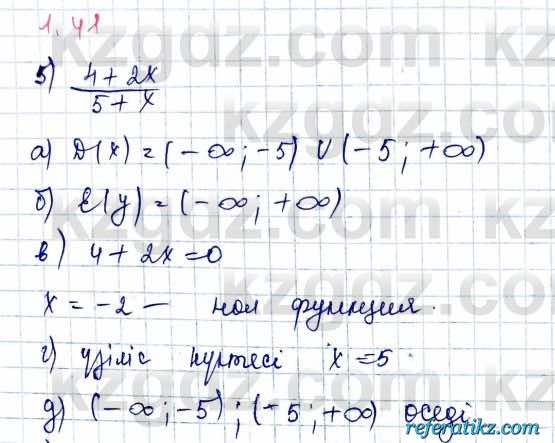 1.41
5) 4 + 2x / 5 + x
а) D(x) = (-∞; -5) U (-5; +∞)
б) E(y) = (-∞; +∞)
в) 4 + 2x = 0
x = -2 — нол функция.
г) үзіліс нүктесі x = 5.
д) (-∞; -5); (-5; +∞) өседі.
kzgdz.com
referatikz.com